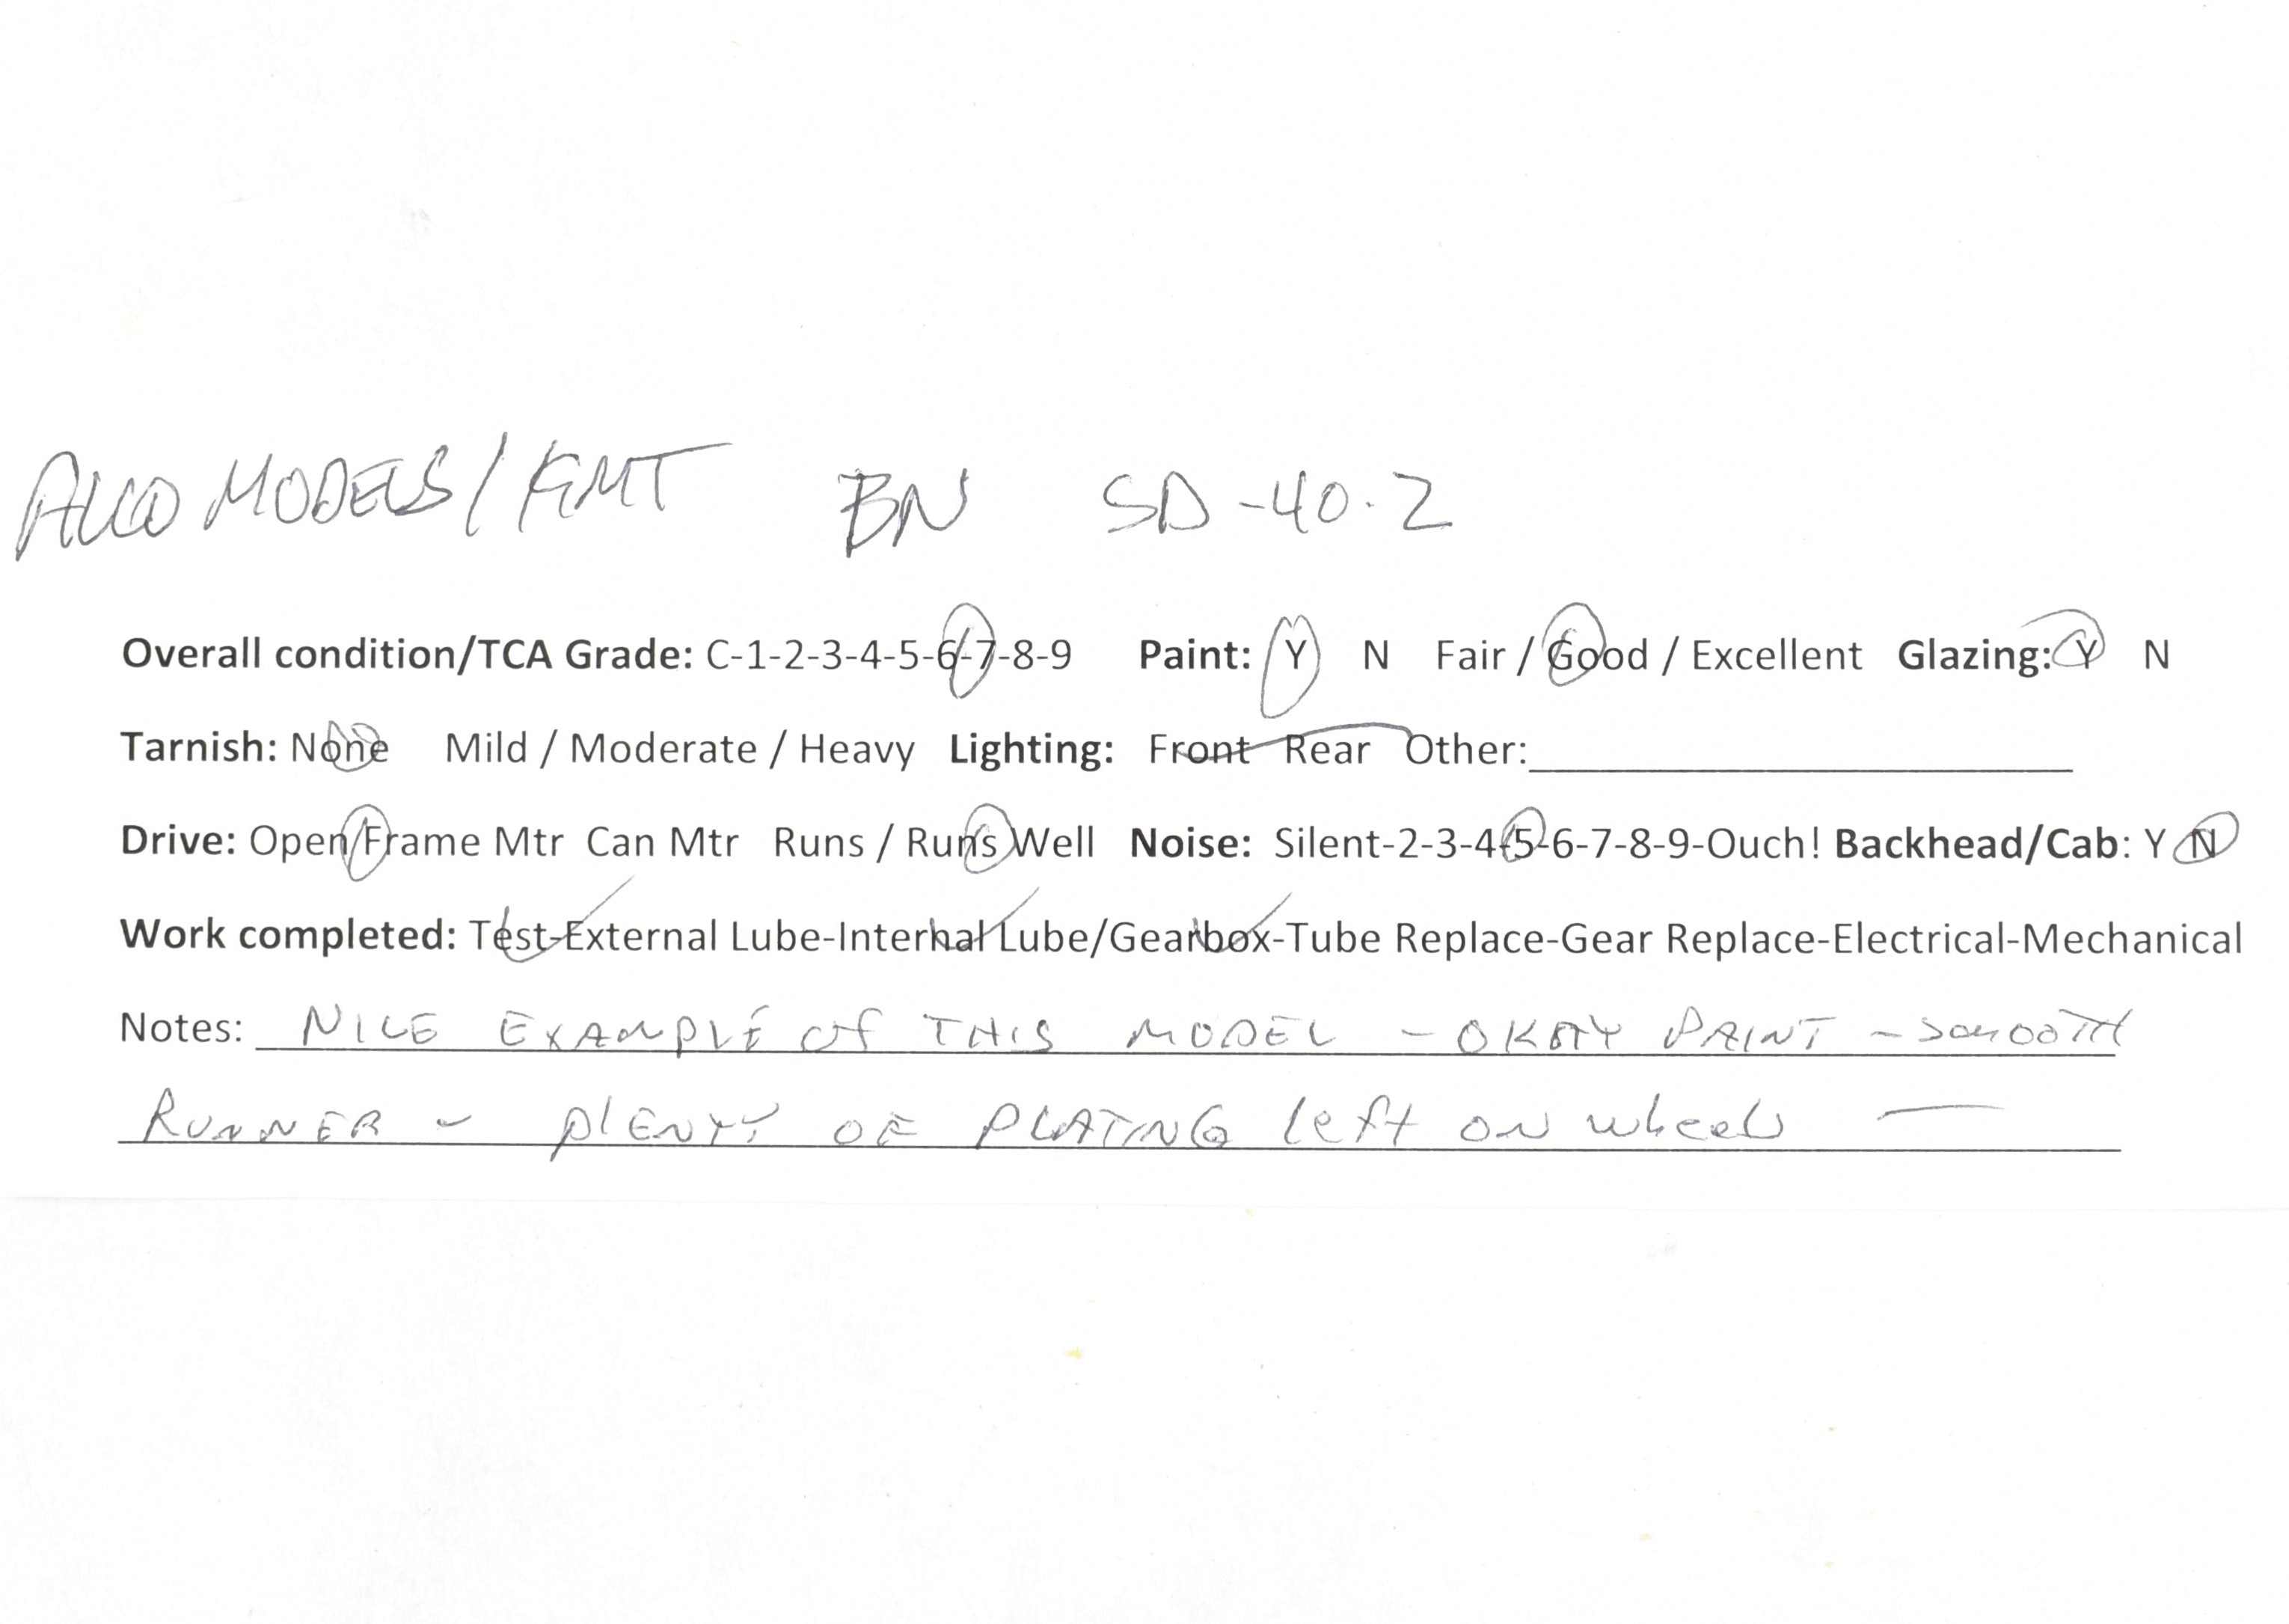 ALCO MODELS / KMT BN SD-40-2
Overall condition/TCA Grade: C-1-2-3-4-5-6-7-8-9 Paint: Y N Fair / Good / Excellent Glazing: Y N
Tarnish: None Mild / Moderate / Heavy Lighting: Front Rear Other:
Drive: Open/Frame Mtr Can Mtr Runs / Runs Well Noise: Silent-2-3-4-5-6-7-8-9-Ouch! Backhead/Cab: Y N
Work completed: Test-External Lube-Internal Lube/Gearbox-Tube Replace-Gear Replace-Electrical-Mechanical
Notes: NICE EXAMPLE of THIS MODEL - OKAY PAINT - SMOOTH
RUNNER - PLENTY OF PLATING left on wheels